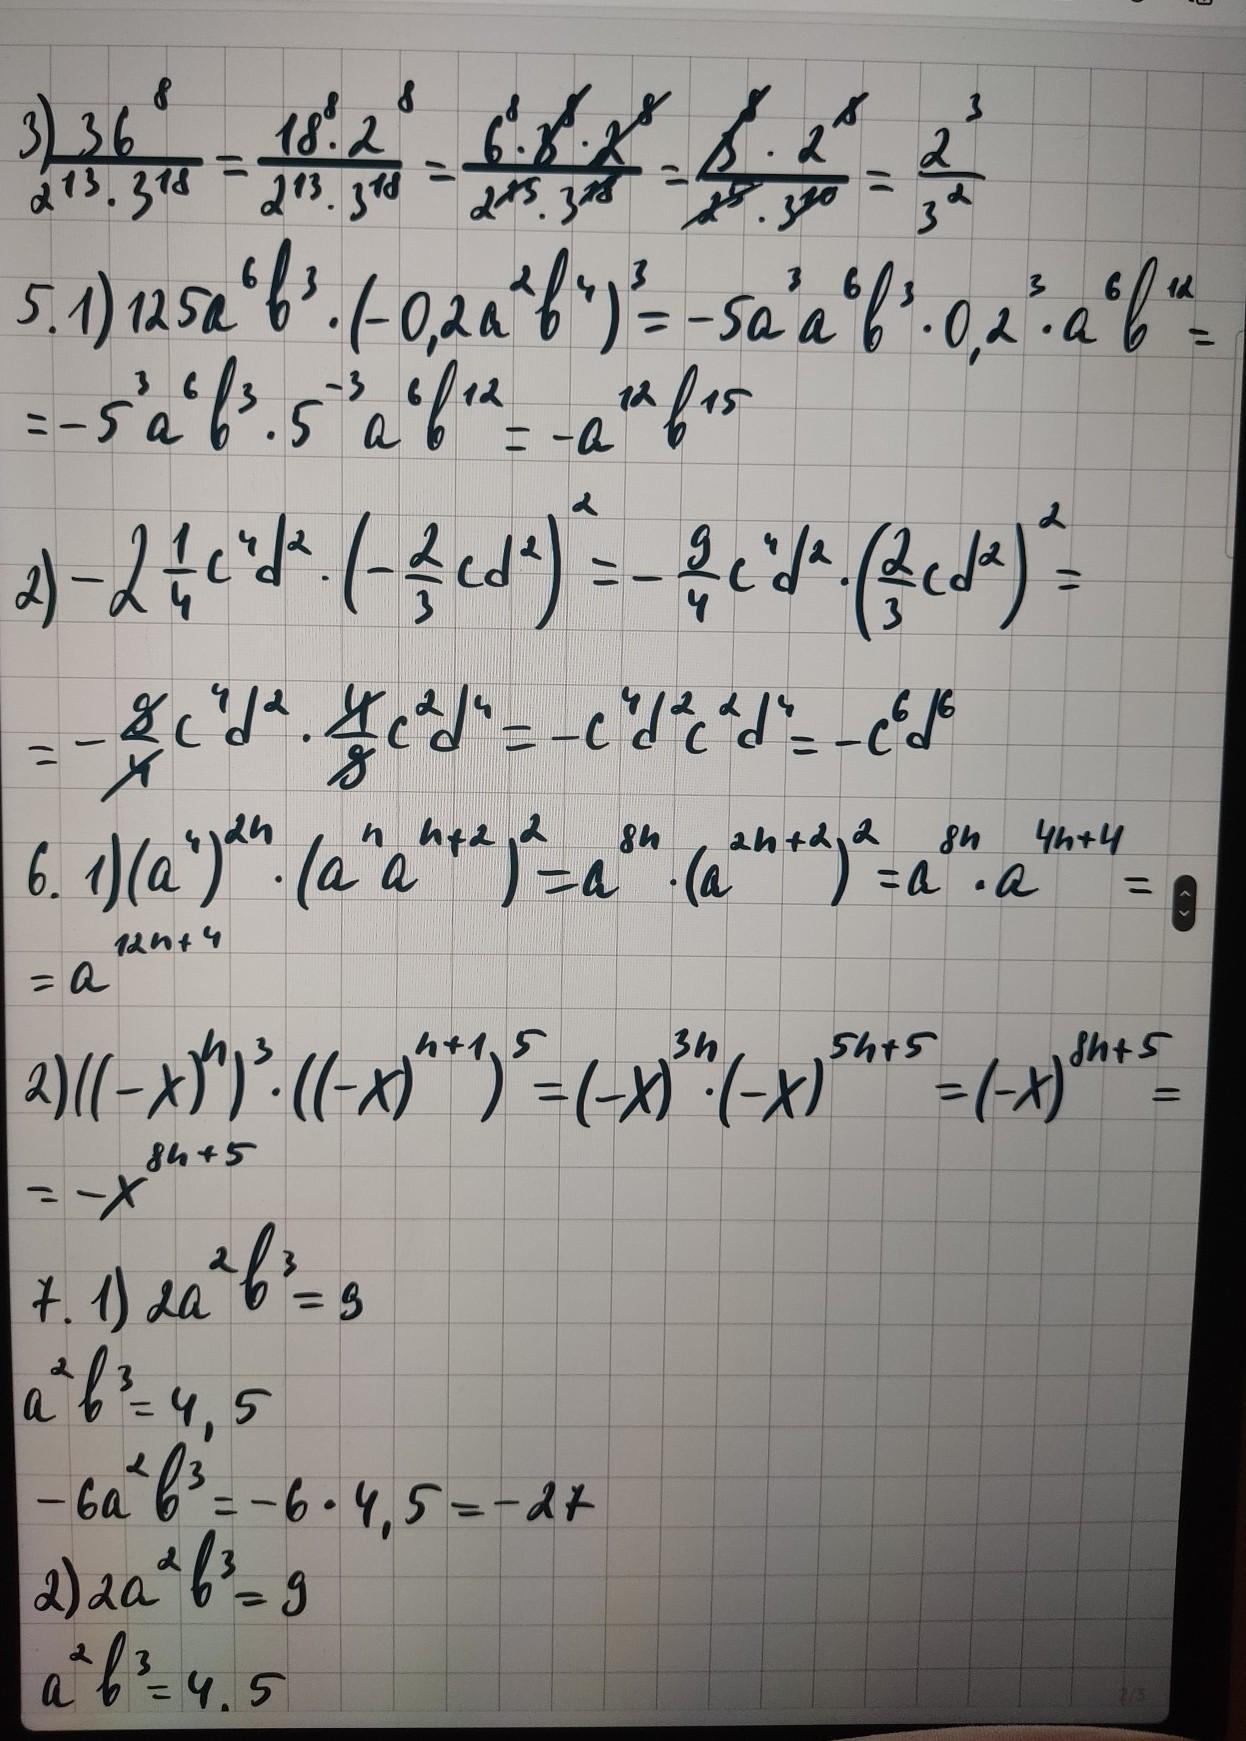 3) 36^8 / (2^13 · 3^18) = 18^8 · 2^8 / (2^13 · 3^18) = 6^8 · 3^8 · 2^8 / (2^15 · 3^18) = 3^8 · 2^8 / (2^5 · 3^10) = 2^3 / 3^2
5. 1) 125a^6 b^3 · (-0,2a^2 b^4)^3 = -5a^3 a^6 b^3 · 0,2^3 · a^6 b^12 =
= -5^3 a^6 b^3 · 5^-3 a^6 b^12 = -a^12 b^15
2) -2 1/4 c^4 d^2 · (-2/3 cd^2)^2 = -9/4 c^4 d^2 · (2/3 cd^2)^2 =
= -9/4 c^4 d^2 · 4/9 c^2 d^4 = -c^4 d^2 c^2 d^4 = -c^6 d^6
6. 1) (a^4)^2n · (a^n a^n+2)^2 = a^8n · (a^2n+2)^2 = a^8n · a^4n+4 =
= a^12n+4
2) ((-x)^n)^3 · ((-x)^n+1)^5 = (-x)^3n · (-x)^5n+5 = (-x)^8n+5 =
= -x^8n+5
7. 1) 2a^2 b^3 = 9
a^2 b^3 = 4,5
-6a^2 b^3 = -6 · 4,5 = -27
2) 2a^2 b^3 = 9
a^2 b^3 = 4.5
2/3